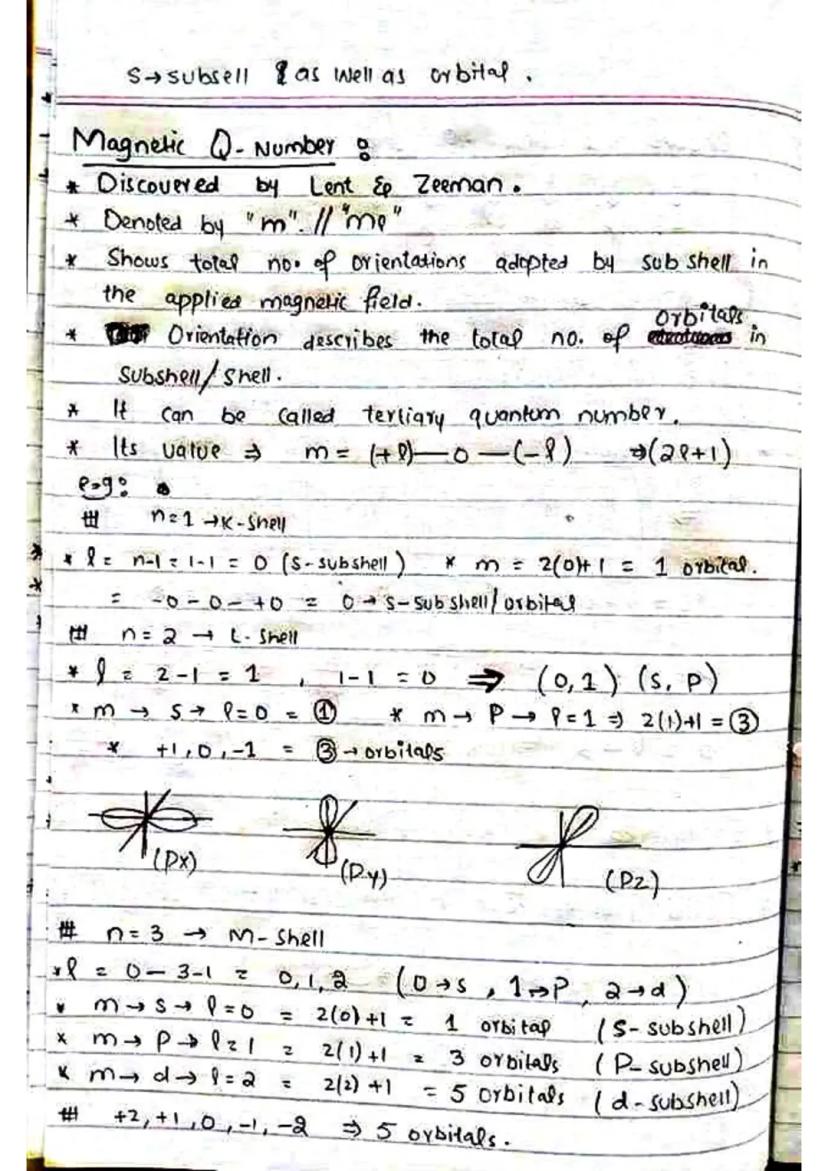 S→subsell & as well as orbital.
Magnetic Q-Number :
* Discovered by Lent & Zeeman.
* Denoted by "m". // "mℓ"
* Shows total no. of orientations adopted by sub shell in
the applied magnetic field.
* Orientation describes the total no. of orbitals in
subshell/shell.
* It can be called tertiary quantum number.
* Its value ⇒ m = (+ℓ)—0—(-ℓ) ⇒(2ℓ+1)
e.g:
# n=1 →K-Shell
* ℓ = n-1 = 1-1 = 0 (S-subshell) * m = 2(0)+1 = 1 orbital.
= -0-0-+0 = 0→ s-sub shell/orbital
# n=2 → L-Shell
* ℓ = 2-1 = 1 , 1-1 = 0 ⇒ (0,1) (s, p)
* m → s → ℓ=0 = ① * m→ P → ℓ=1 ⇒ 2(1)+1 = ③
* +1,0,-1 = ③→orbitals
(Px)
(Py)
(Pz)
# n=3 → M-Shell
*ℓ = 0—3-1 = 0,1,2 (0→s , 1→P, 2→d)
* m→s→ ℓ=0 = 2(0)+1 = 1 orbital (S-subshell)
* m→ P→ ℓ=1 = 2(1)+1 = 3 orbitals (P-subshell)
* m→ d→ ℓ=2 = 2(2)+1 = 5 orbitals (d-subshell)
# +2,+1,0,-1,-2 ⇒ 5 orbitals.